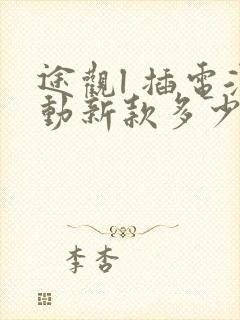 途觀l 插電混
動新款多少
李杏